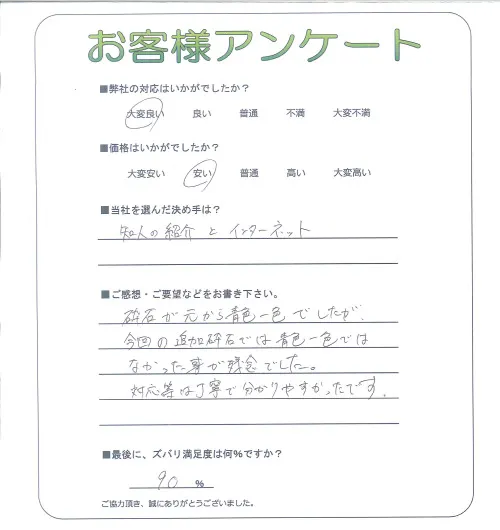 お客様アンケート
■弊社の対応はいかがでしたか？
大変良い 良い 普通 不満 大変不満
■価格はいかがでしたか？
大変安い 安い 普通 高い 大変高い
■当社を選んだ決め手は？
知人の紹介とインターネット
■ご感想・ご要望などをお書き下さい。
砕石が元から青色一色でしたが、
今回の追加砕石では青色一色では
なかった事が残念でした。
対応等は丁寧で分かりやすかったです。
■最後に、ズバリ満足度は何％ですか？
90 ％
ご協力頂き、誠にありがとうございました。